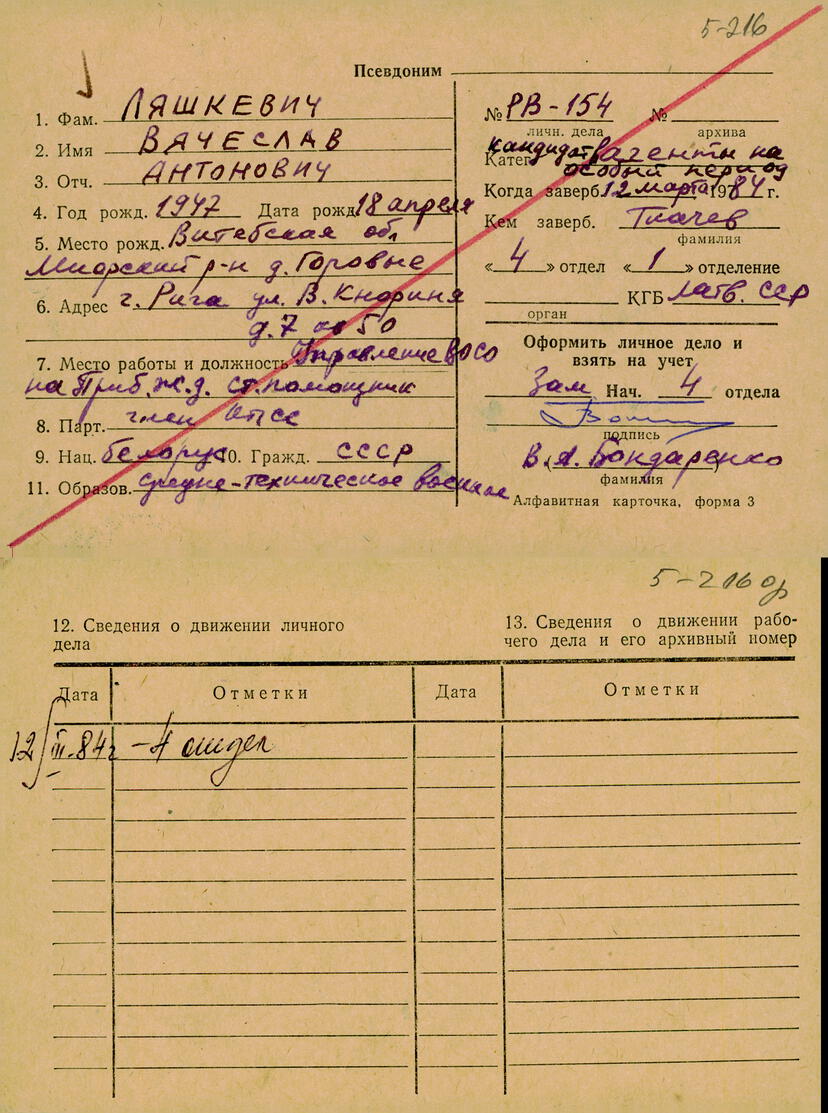 5-216
Псевдоним
1. Фам. ЛЯШКЕВИЧ
2. Имя ВЯЧЕСЛАВ
3. Отч. АНТОНОВИЧ
4. Год рожд. 1947 Дата рожд. 18 апреля
5. Место рожд. Витебская обл
Миорский р-н д. Горовые
6. Адрес г. Рига ул. В. Кнориня
д. 7 кв 50
7. Место работы и должность Управление ВОСО
на Приб. ж. д. ст. помощник
8. Парт. член КПСС
9. Нац. белорус 10. Гражд. СССР
11. Образов. средне-техническое военное
№ РВ-154 №
личн. дела архива
Катег. кандидат в агенты на
особый период
Когда заверб. 12 марта 1984 г.
Кем заверб. Ткачев
фамилия
« 4 » отдел « 1 » отделение
КГБ Латв. ССР
орган
Оформить личное дело и
взять на учет
Зам Нач. 4 отдела
подпись
В. А. Бондаренко
фамилия
Алфавитная карточка, форма 3
5-216 ор
12. Сведения о движении личного
дела
13. Сведения о движении рабо-
чего дела и его архивный номер
Дата Отметки Дата Отметки
12/III-84г - 4 отдел